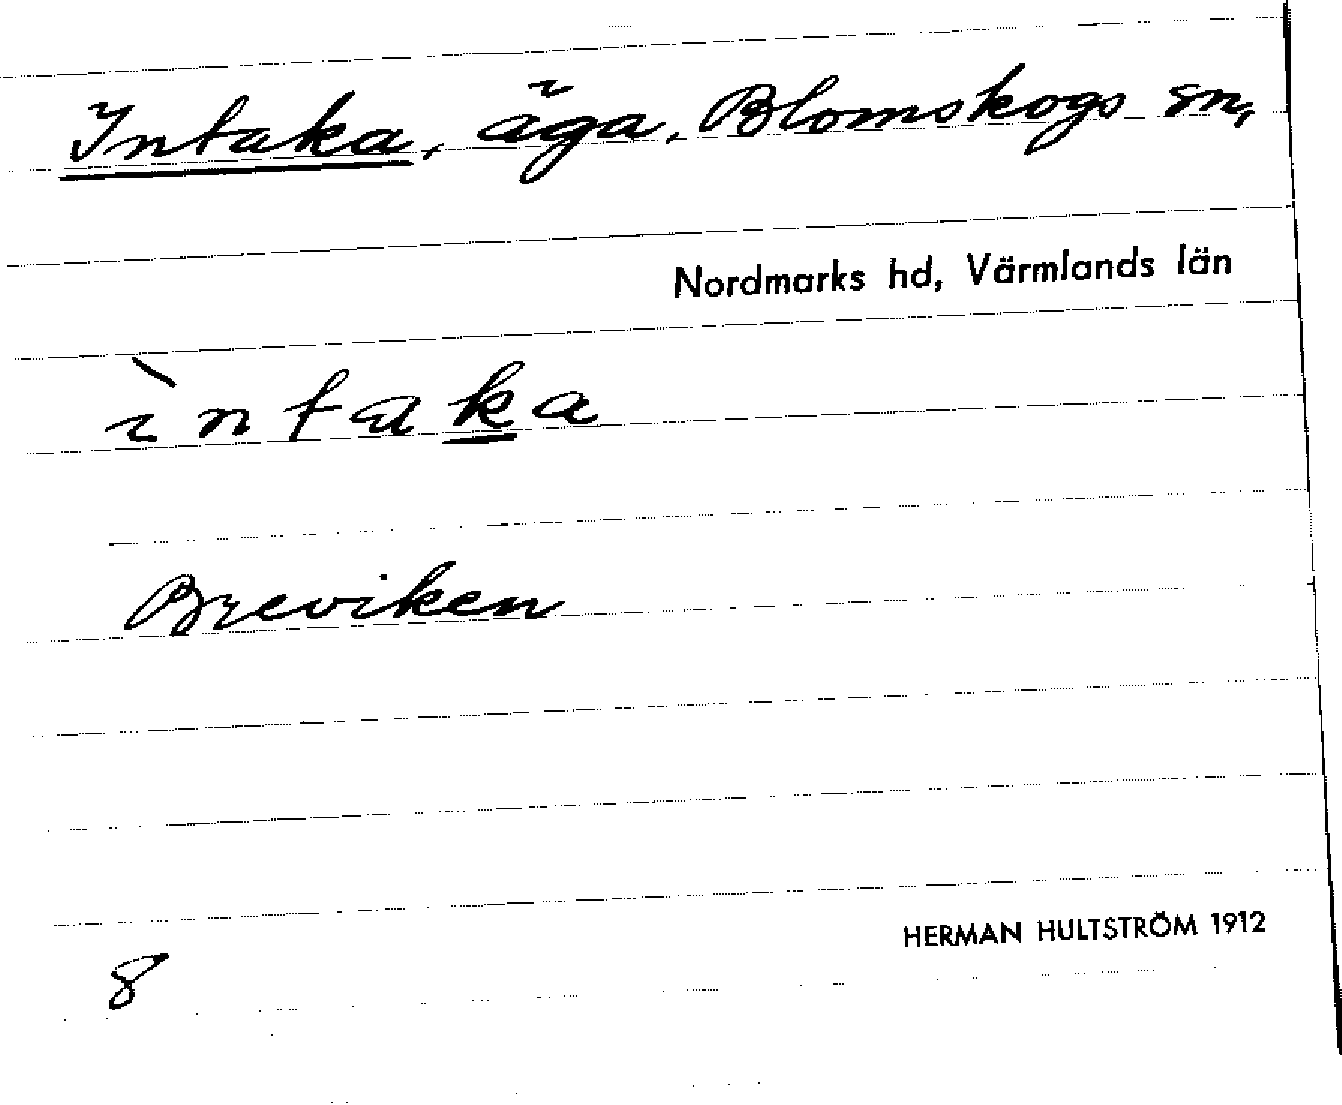 Intaka, äga, Blomskogs sn,
Nordmarks hd, Värmlands län
ìntaka
Breviken
8
HERMAN HULTSTRÖM 1912